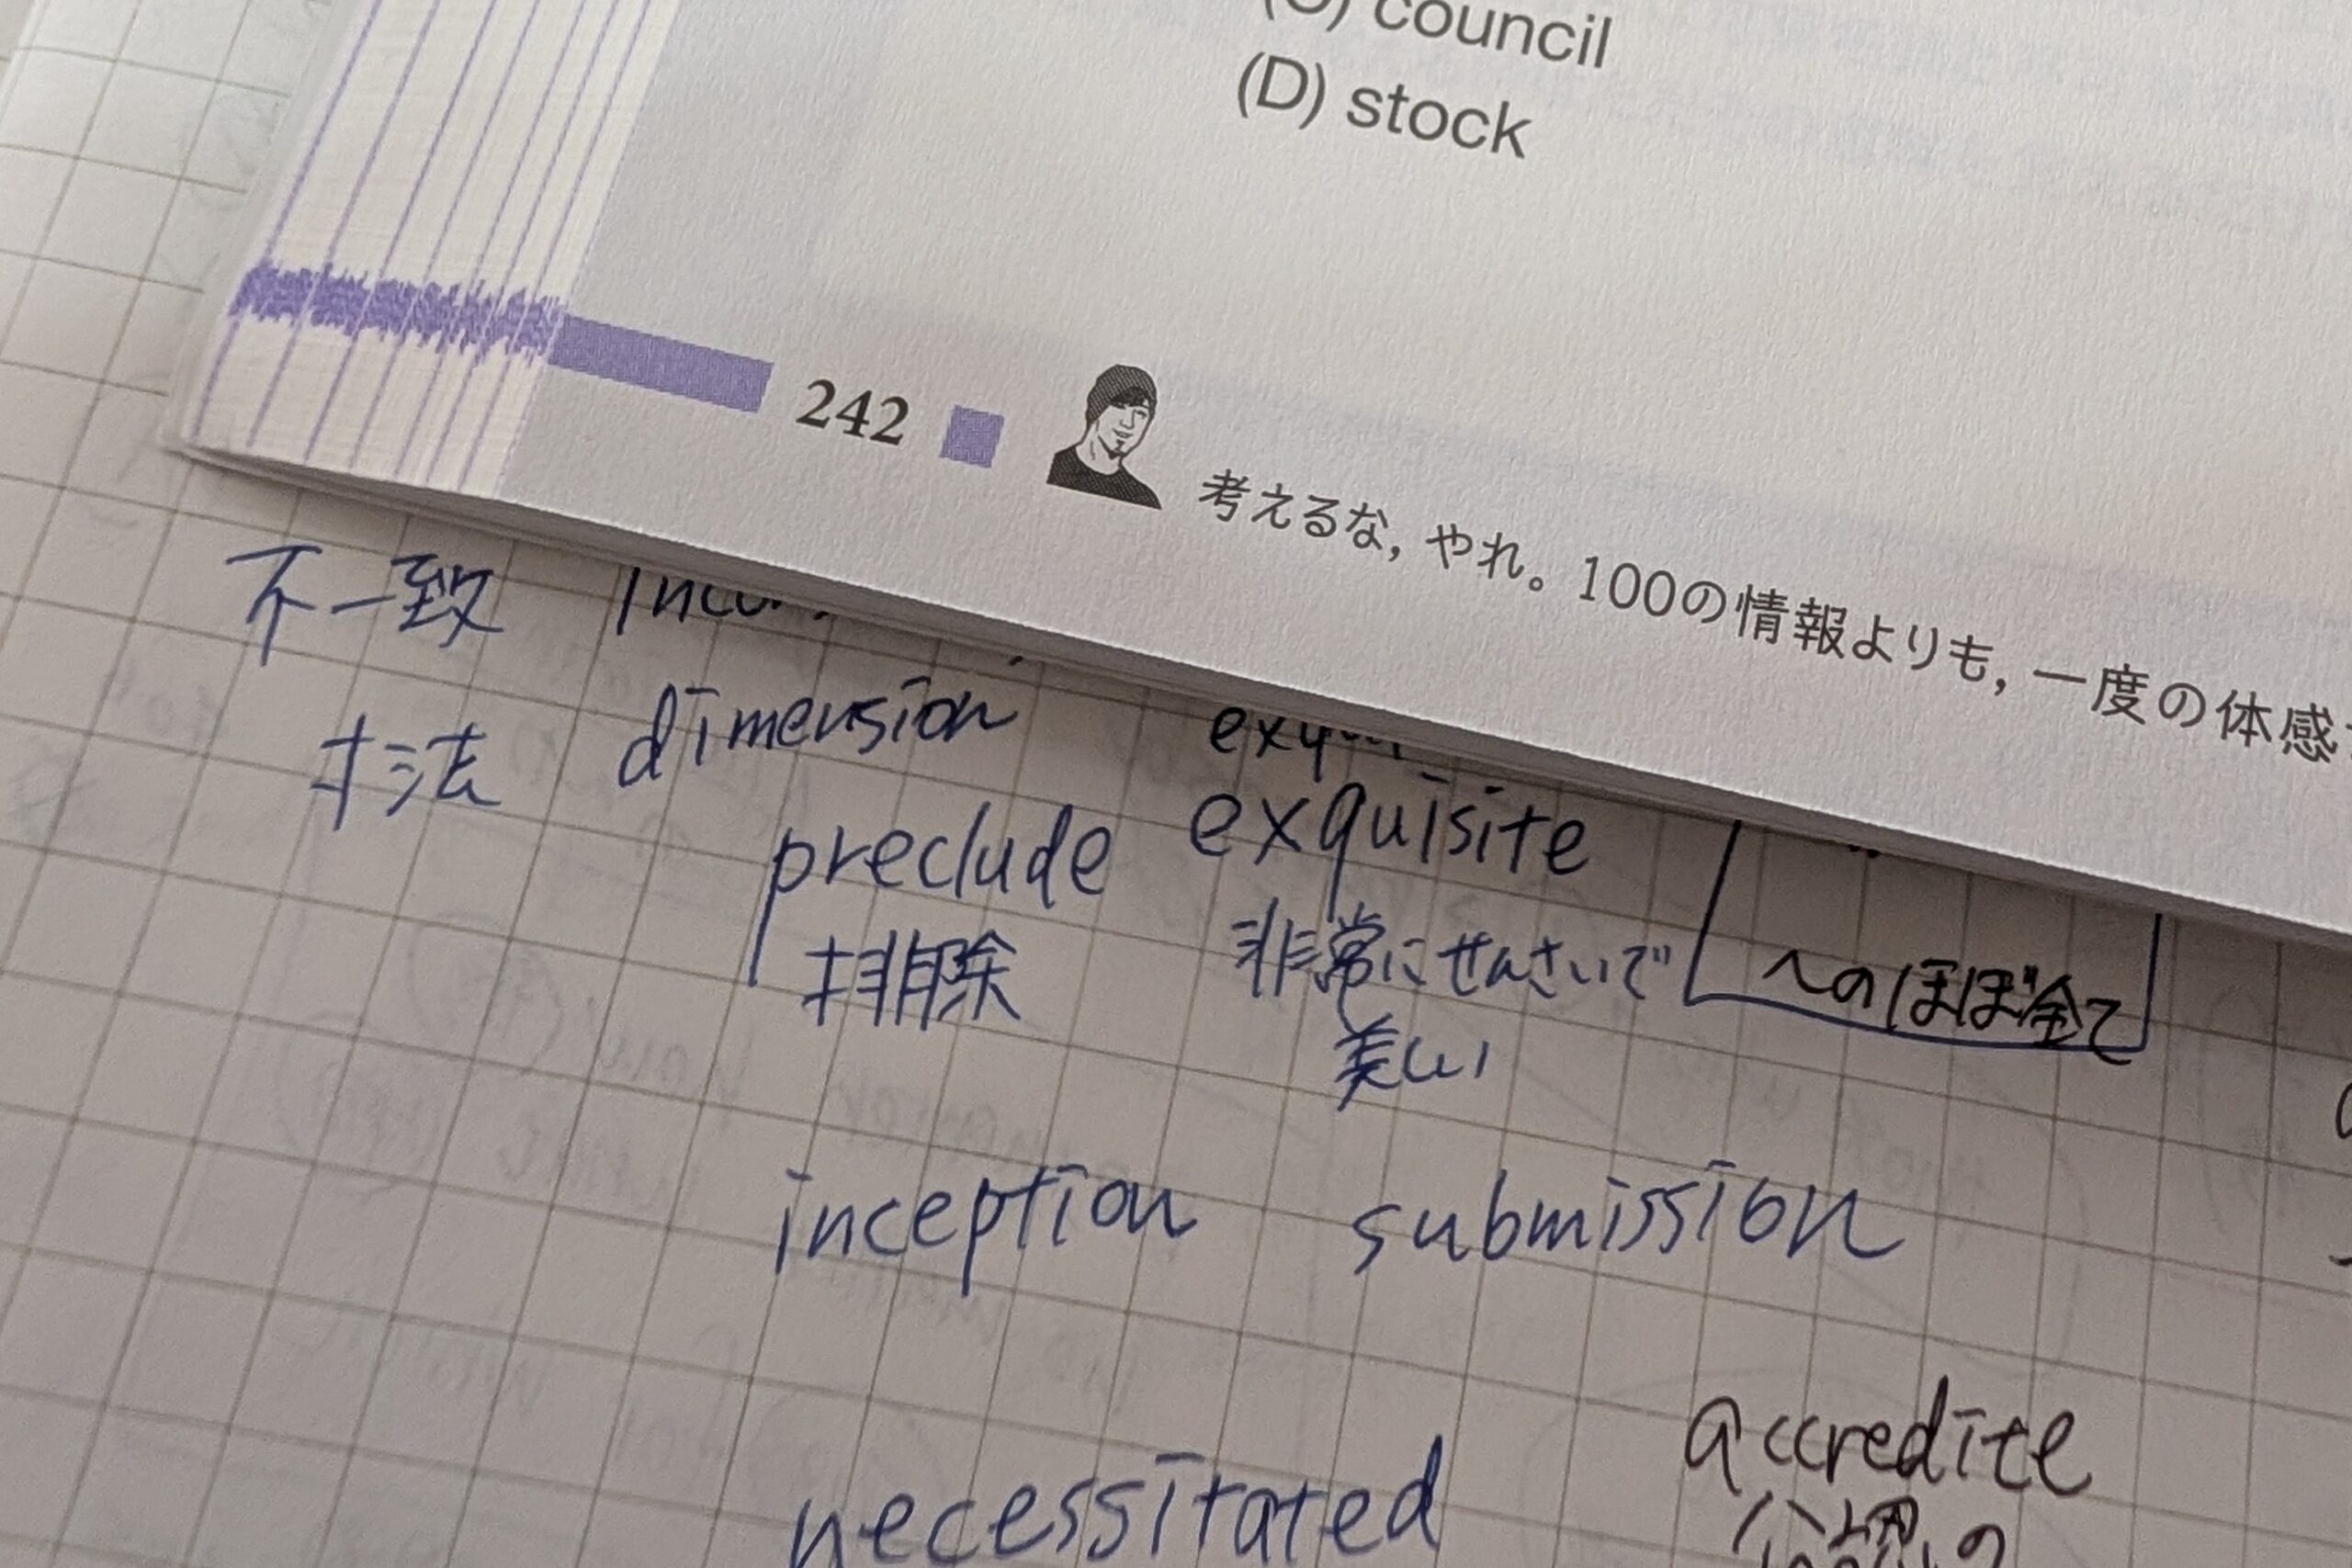 council
(D) stock
242
考えるな, やれ。100の情報よりも, 一度の体感
不一致
寸法 dimension
preclude
排除
exquisite
非常にせんさいで
美しい
へのほぼ全て
inception submission
accredite
necessitated